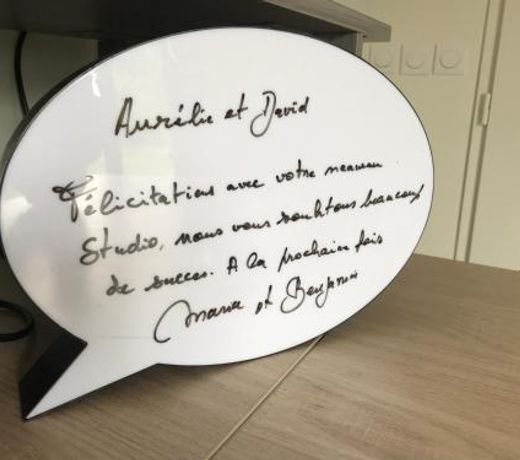 Aurélie et David
Félicitations avec votre nouveau
Studio, nous vous souhaitons beaucoup
de succes. A la prochaine fois
et Benjamin